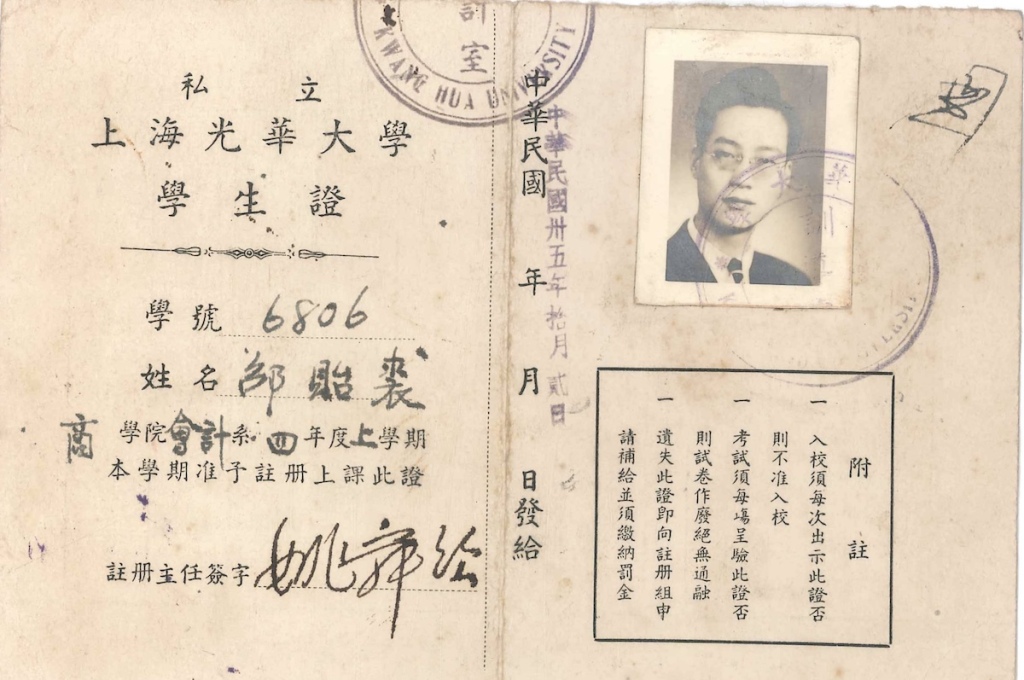 計
室
KWANG HUA UNIVERSITY
私立
上海光華大學
學生證
學號 6806
姓名 邵貽裘
商學院會計系四年度上學期
本學期准予註册上課此證
註册主任簽字
中華民國 年 月 日發給
中華民國卅五年拾月貳日
華
訓
ERSIT
附註
一 入校須每次出示此證否
則不准入校
一 考試須每場呈驗此證否
則試卷作廢絕無通融
一 遺失此證即向註册組申
請補給並須繳納罰金